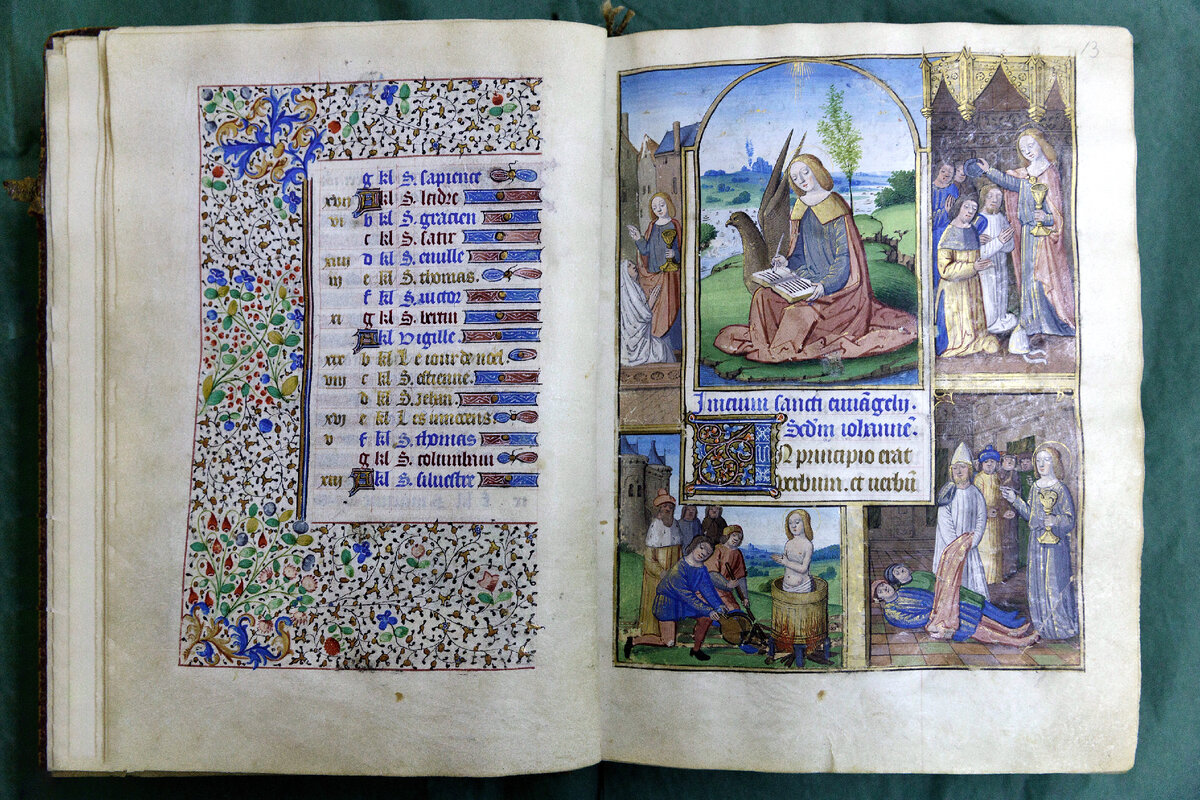 g kl S. sapience
xviij A kl S. leidre
vi b kl S. gracien
c kl S. satir
xiiii d kl S. euille
iij e kl S. thomas.
f kl S. victor
xi g kl S. bertin
A kl Vigille.
xix b kl Le iour de noel.
viij c kl S. estienne.
d kl S. Jehan
xvj e kl Les innocens
v f kl S. thomas
g kl S. columban
xiij A kl S. siluestre
13
Inicium sancti euuãgelij.
Scd'm iohannẽ.
IN principio erat
verbum. et verbũ